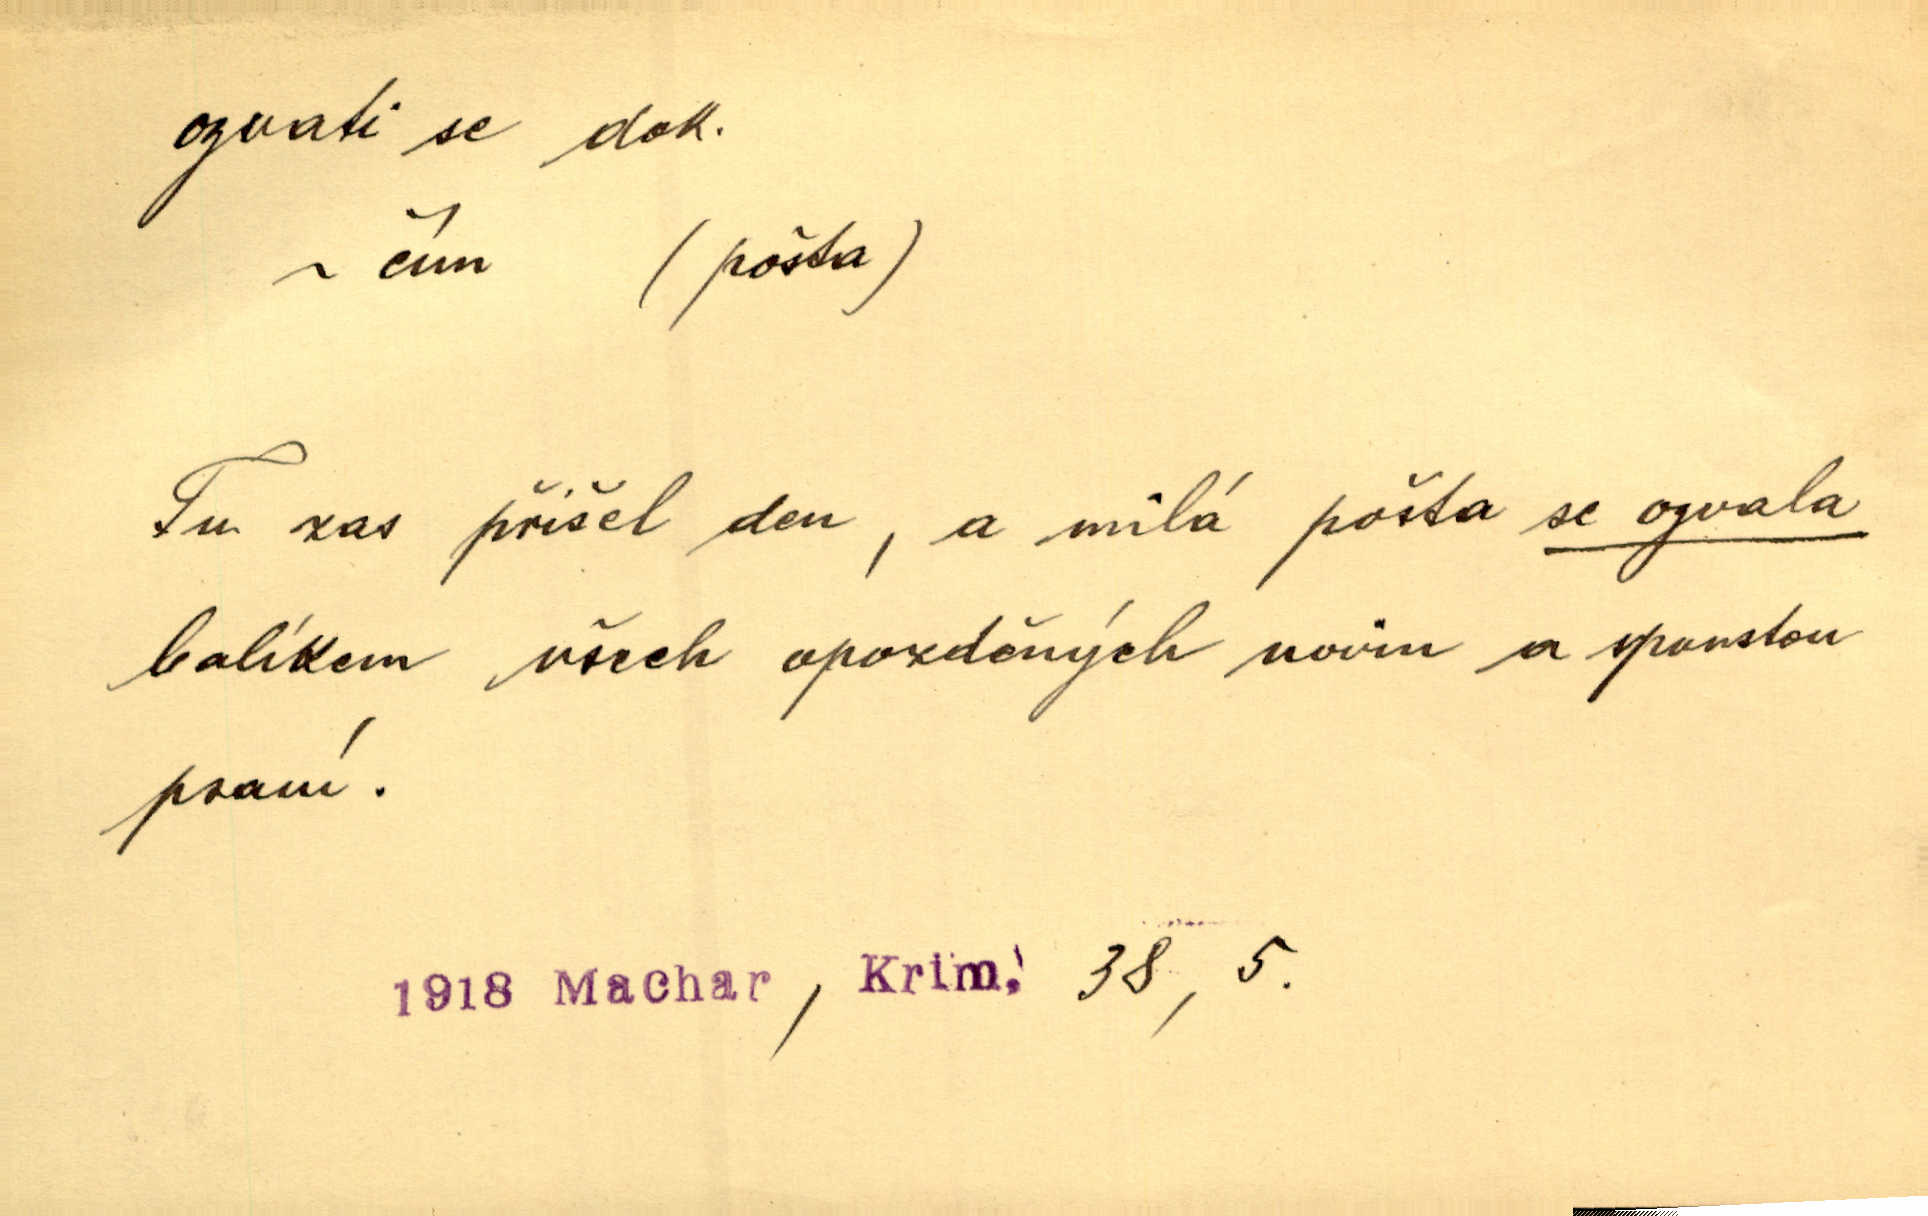 ozvati se dok.
~ čím (pošta)
Tu zas přišel den, a milá pošta se ozvala
balíkem všech opožděných novin a spoustou
psaní.
1918 Machar, Krim. 38, 5.